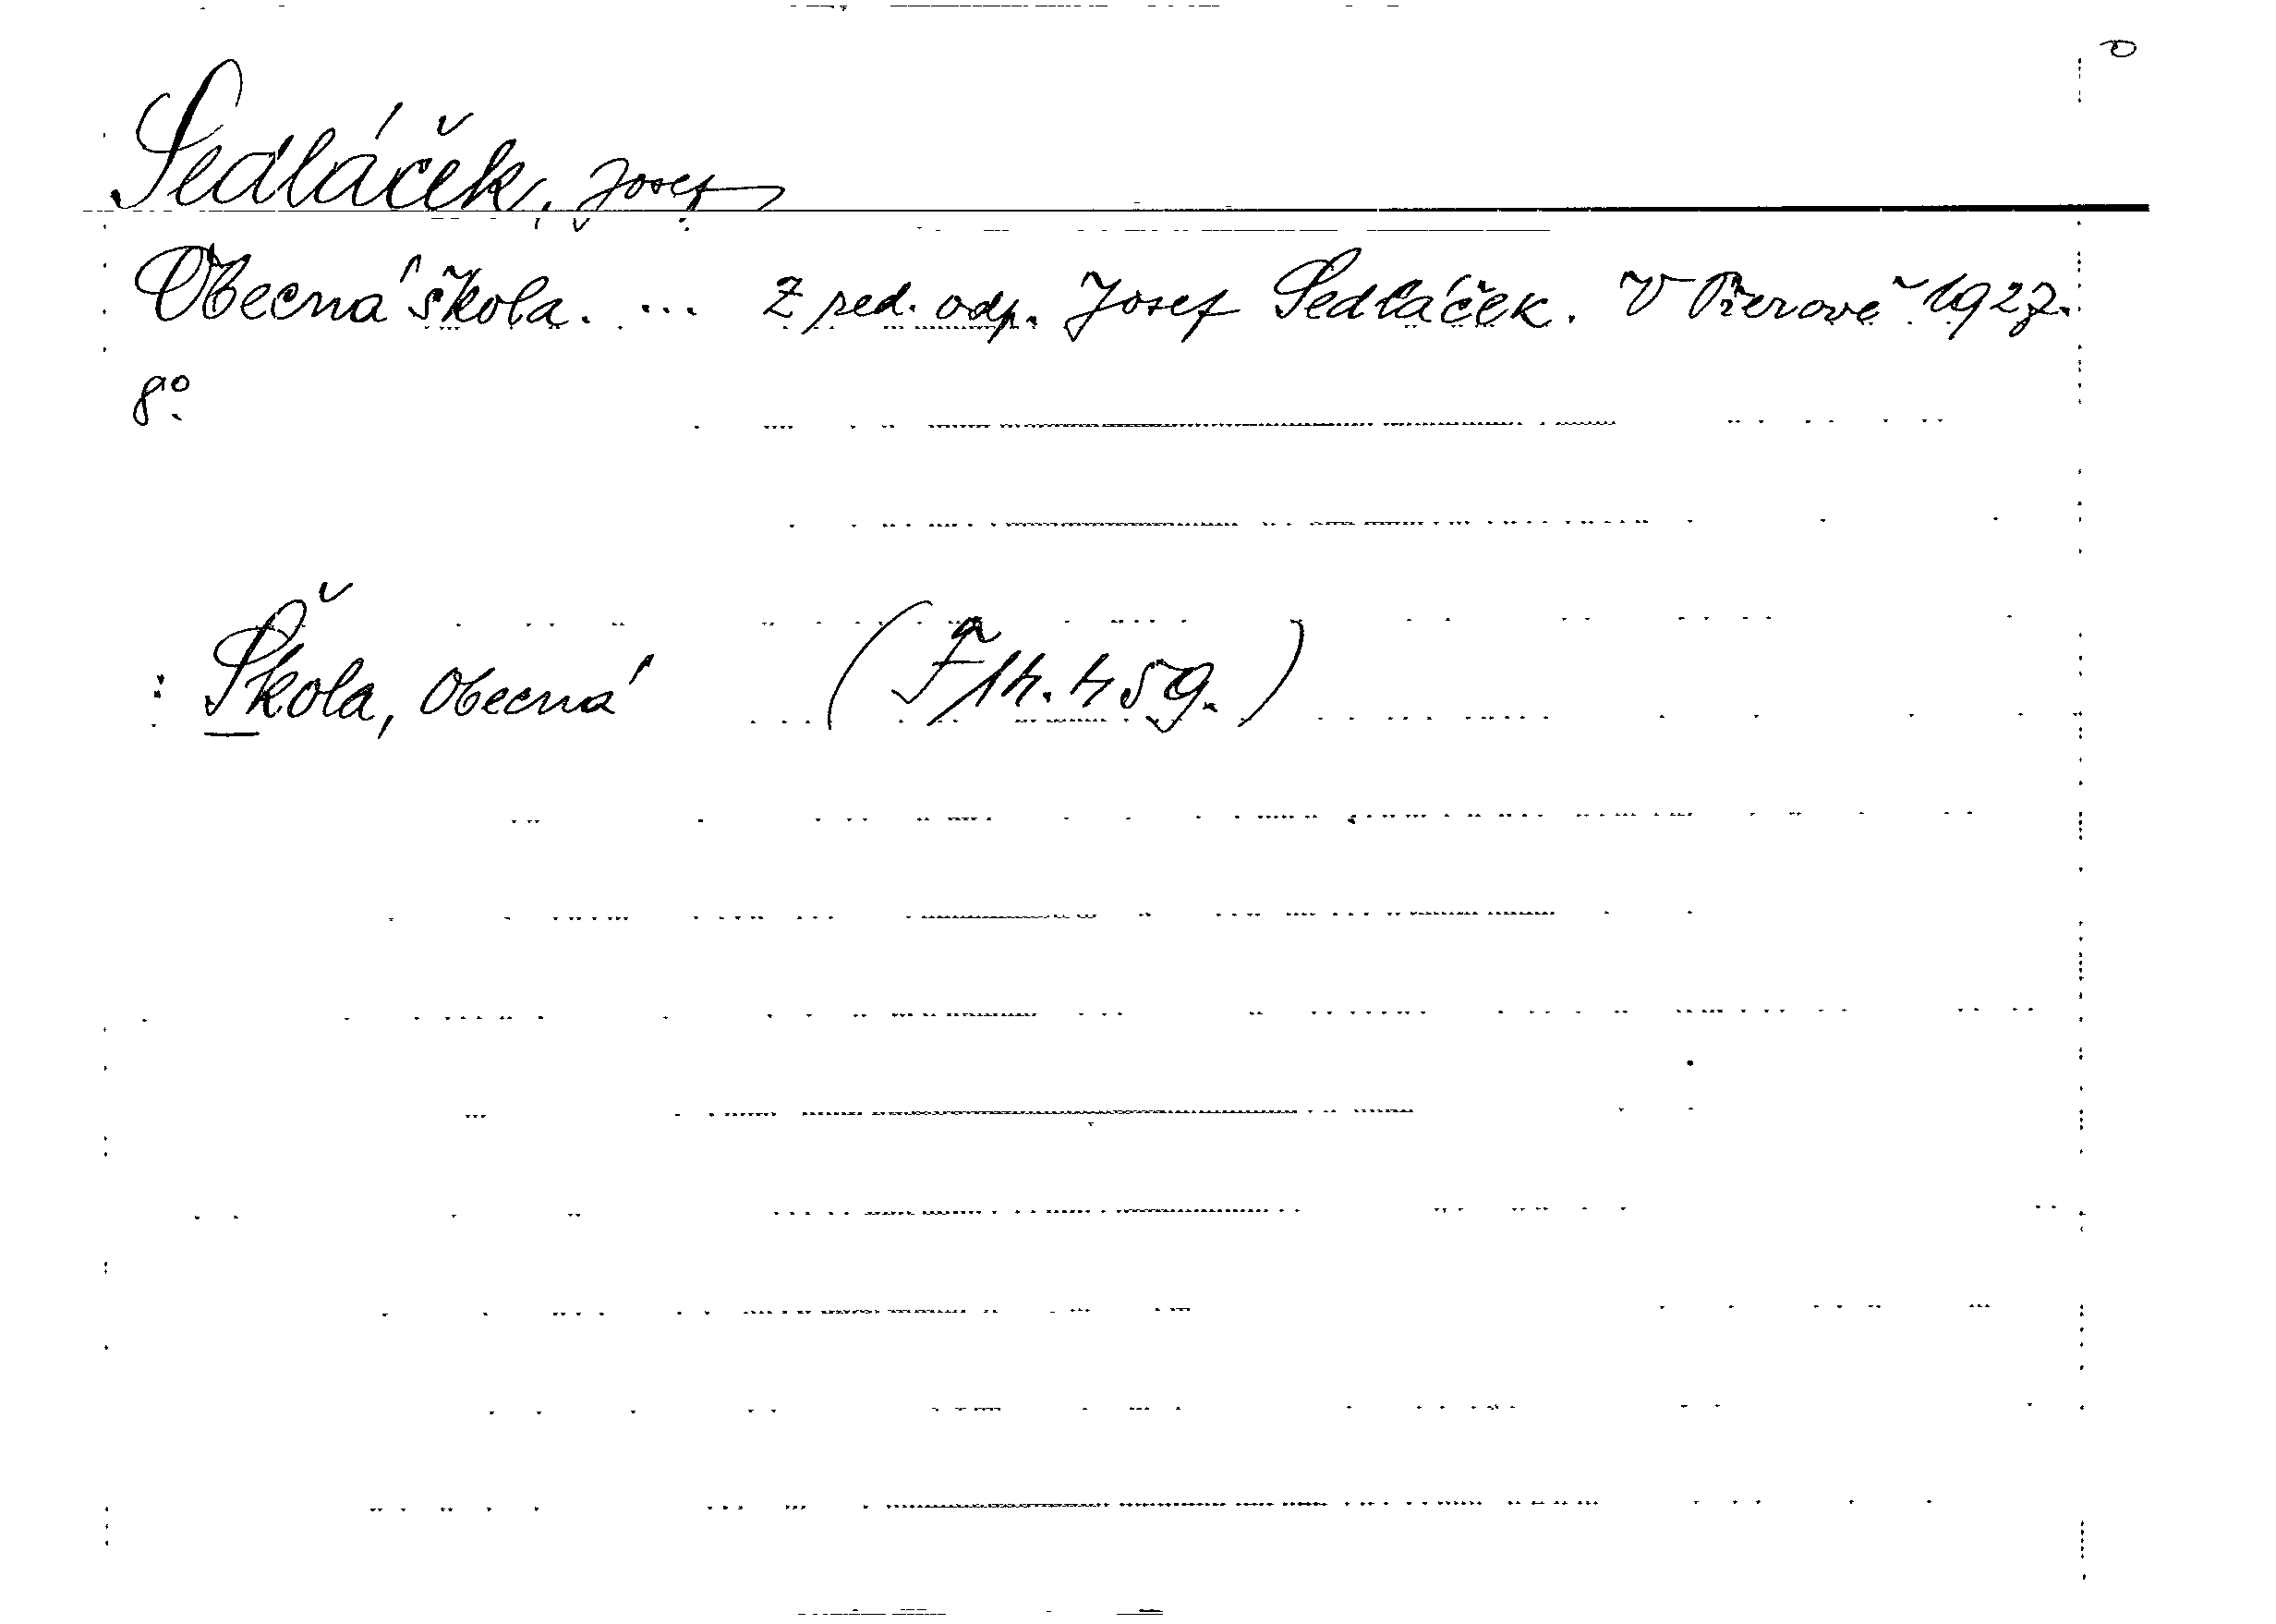 Sedláček, Josef
Obecná škola. ... Z red. odp. Josef Sedláček. V Přerově 1927.
8°.
: Škola, Obecná (F 14.459.)